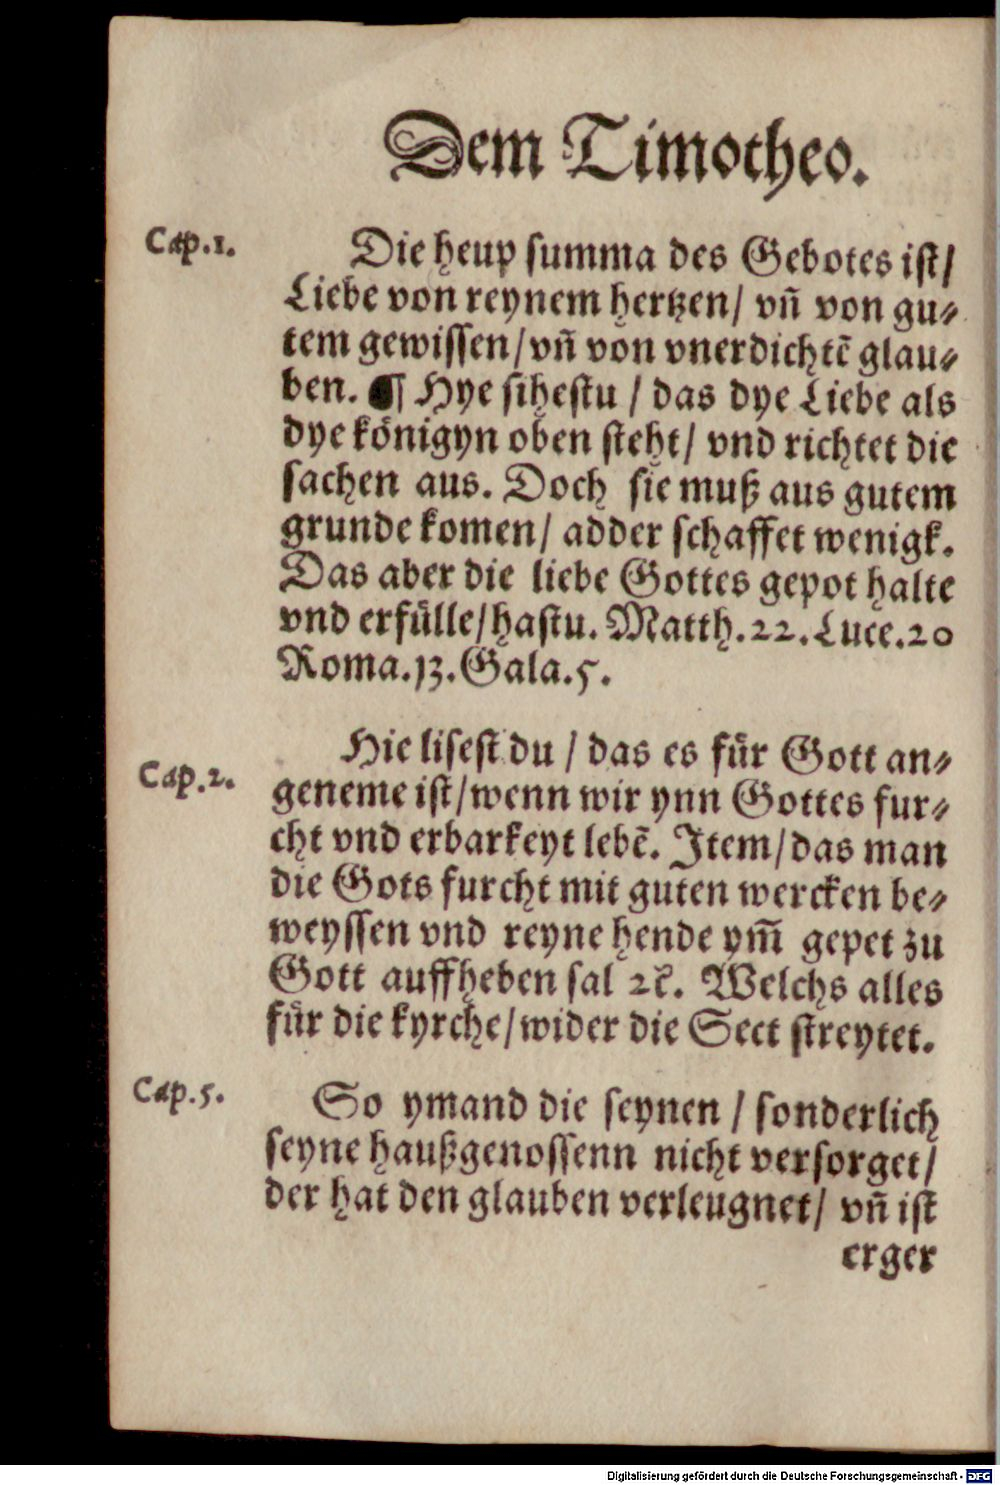 Dem Timotheo.
Cap.1.
Die heup summa des Gebotes ist/
Liebe von reynem hertzen/ vñ von gu⸗
tem gewissen/vñ von vnerdichtē glau⸗
ben. ¶ Hye sihestu / das dye Liebe als
dye königyn oben steht/ vnd richtet die
sachen aus. Doch sie muß aus gutem
grunde komen/ adder schaffet wenigk.
Das aber die liebe Gottes gepot halte
vnd erfülle/hastu. Matth.22.Luce.20
Roma.13.Gala.5.
Cap.2.
Hie lisest du / das es für Gott an⸗
geneme ist/wenn wir ynn Gottes fur⸗
cht vnd erbarkeyt lebē. Item/das man
die Gots furcht mit guten wercken be⸗
weyssen vnd reyne hende ym̄ gepet zu
Gott auffheben sal ꝛc. Welchs alles
für die kyrche/wider die Sect streytet.
Cap.5.
So ymand die seynen / sonderlich
seyne haußgenossenn nicht versorget/
der hat den glauben verleugnet/ vñ ist
erger
Digitalisierung gefördert durch die Deutsche Forschungsgemeinschaft - DFG